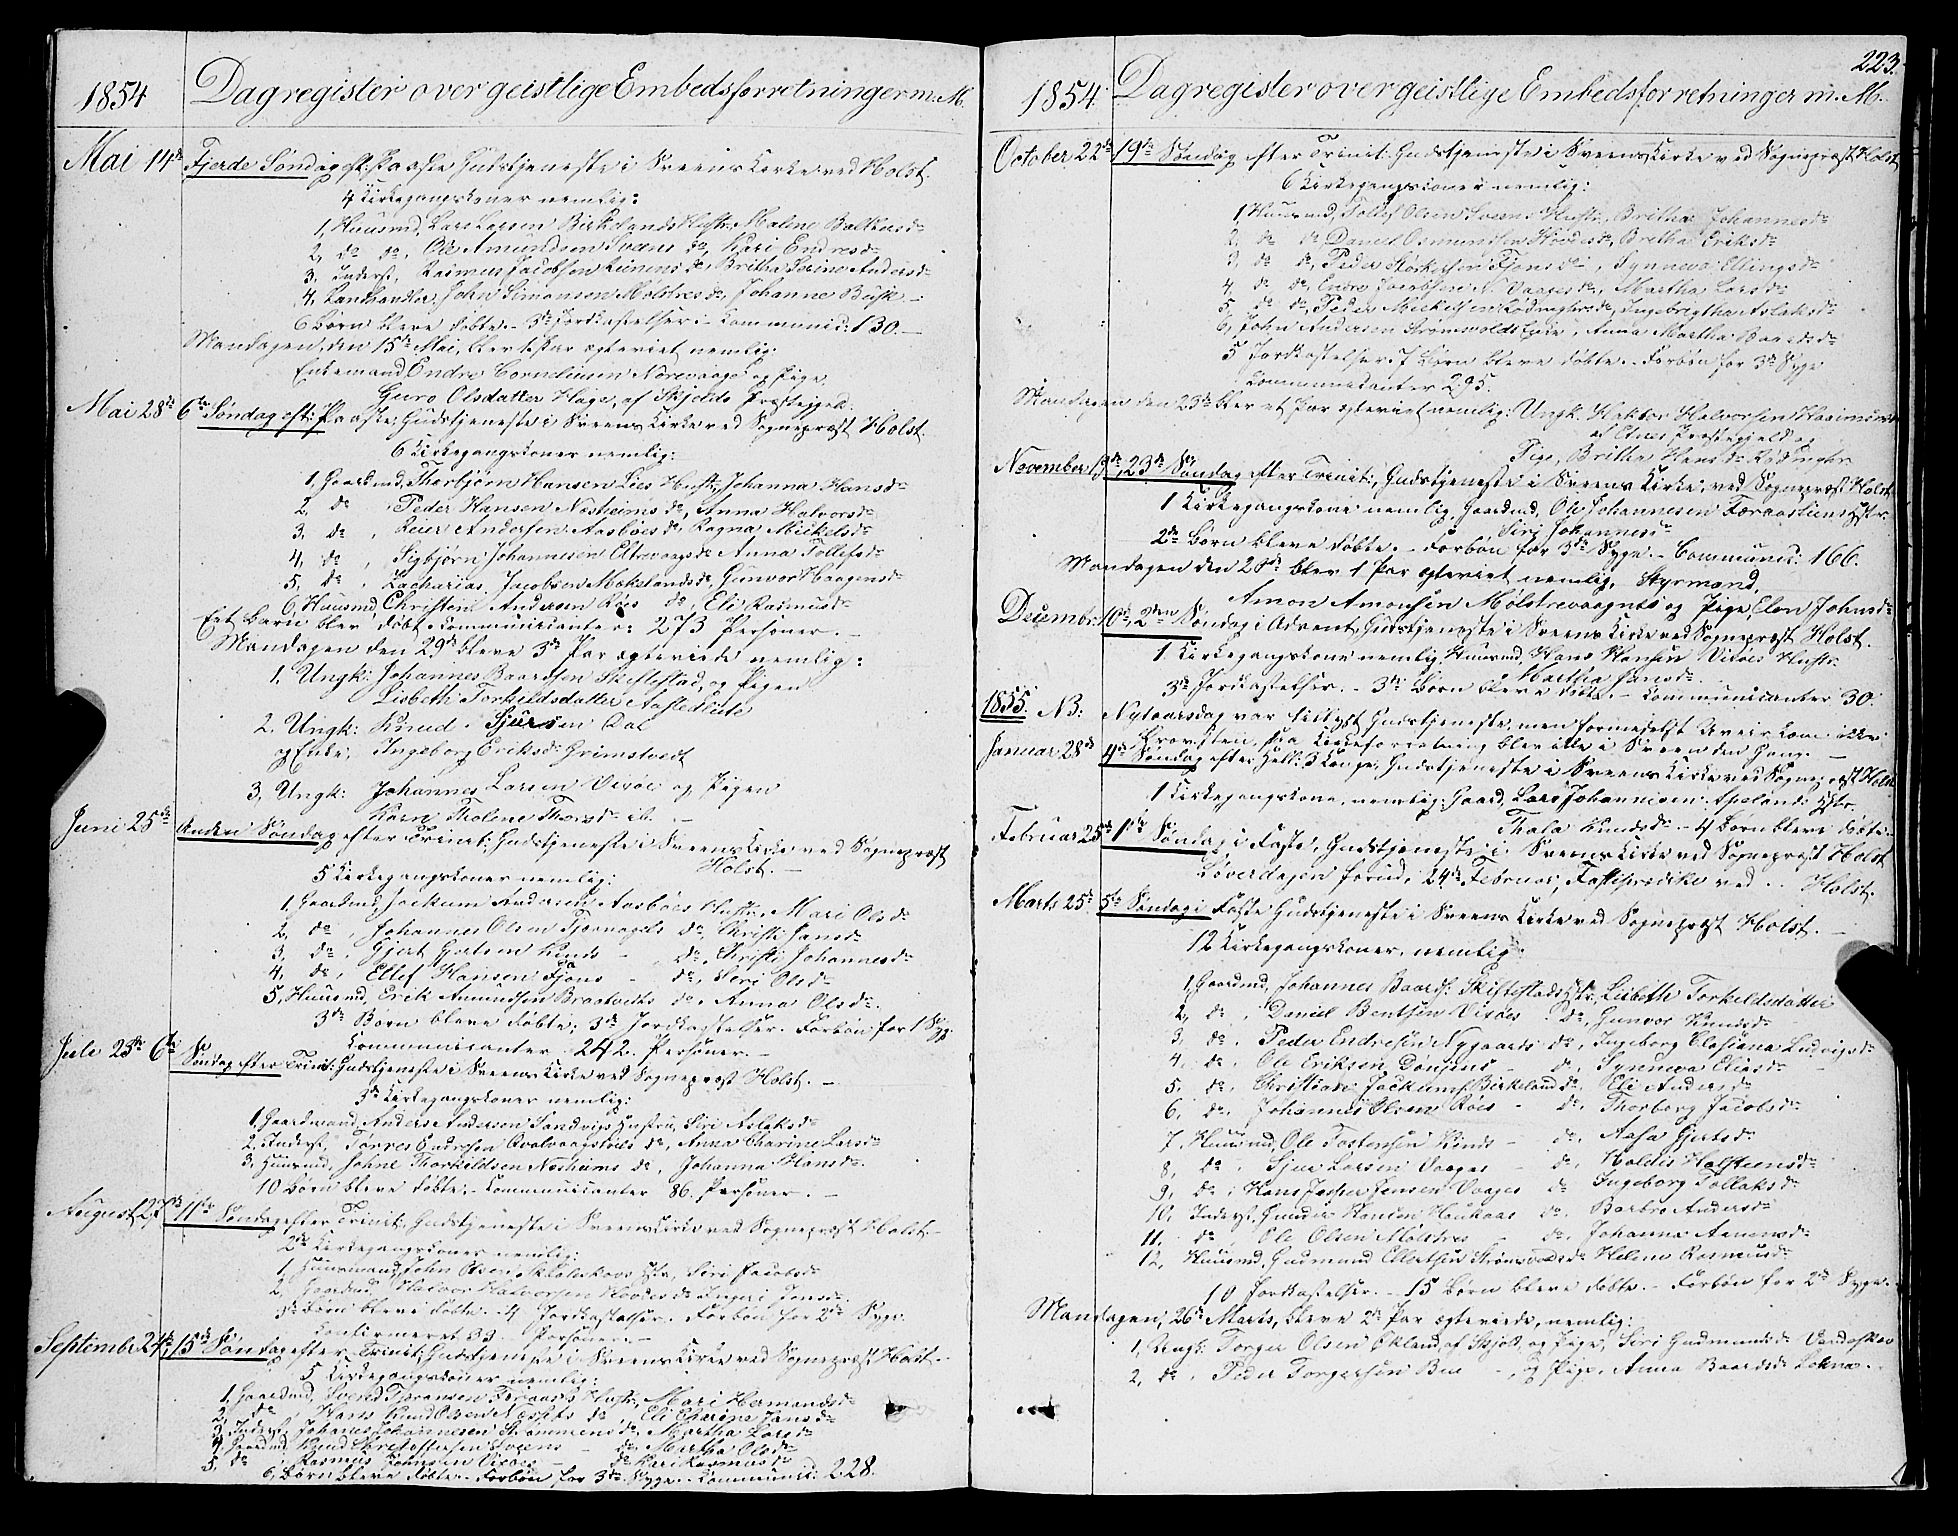 1854 Dagregister over geistlige Embedsforretninger m. M.
Mai 14de Fjerde Søndag eft: Paaske Gudstjeneste i Sveens Kirke ved Holst.
4 Kirkegangskoner nemlig:
1, Huusmd, Lars Larsen Birkelands Hustr. Malene Baltsersdr
2, do do, Ole Amundsen Sveens do, Kari Endresdr
3, Inderst, Rasmus Jacobsen do, Britha Serine Andersdr
4, Landhandler, John Simonsen Mølstres do, Johanne Busk
6 Børn bleve døbte. 3de Jordkastelser. Communic: 130.
Mandagen den 15de Mai, blev 1 Par ægteviet nemlig:
Enkemand Endre Corneliusen Norevaage og Pige,
Guro Olsdatter Hage, af Skjolds Præstegjeld.
Mai 28de 6te Søndag eft: Paaske, Gudstjeneste i Sveens Kirke ved Sognepræst Holst.
6 Kirkegangskoner nemlig:
1, Gaardmd, Thorbjørn Hansen Lies Hustr, Johanna Hansdr
2, do Peder Hansen Nesheims do, Anna Halvorsdr
3, do, Reier Andersen Aasbøes do, Ragna Mickelsdr
4, do, Sigbjørn Johannesen Eltrevaags do Anna Tollefsdr
5, do, Zacharias Jacobsen Mæklands do, Gunvor Haagensdr
6, Huusmd, Christen Andersen Røes do, Eli Rasmusdr
Eet Barn blev døbt. Communicantere 273 Personer.
Mandagen den 29de bleve 3de Par ægteviede nemlig:
1, Ungk: Johannes Baardsen Skiftestad, og Pigen
Lisbeth Torkildsdatter
2. Ungk: Knud Sjursen Dal
og Enke, Ingeborg Eriksdr Grimstvedt
3, Ungk: Johannes Larsen Vixøe og Pigen
Karn Tholene Thorsdr ib.
Juni 25de Anden Søndag efter Trinit: Gudstjeneste i Sveens Kirke ved Sognepræst
Holst.
5 Kirkegangskoner nemlig:
1, Gaardmd, Jockum Andersen Aasbøes Hustr, Mari Olsdr
2, do, Johannes Olsen Tjernagels do, Christi Jansdr
3, do, Gjert Gjertsen Kinds do, Christi Johannesdr
4, do, Ellef Hansen Fjøns do, Seri Olsdr
5, Huusmd, Erik Amundsen Braatvedts do, Anna Olsdr
3de Børn bleve døbte; 3de Jordkastelser. Forbøn for 1 Syg.
Communicanter 242 Personer.
Julie 23de 6te Søndag efter Trinit: Gudstjeneste i Sveens Kirke ved Sognepræst Holst.
3de Kirkegangskoner nemlig:
1, Gaardmand, Anders Andersen Sandvigs Hustru, Siri Aslaksdr
2, Inderst, Tørres Endresen do, Anna Charine Larsdr
3, Huusmd, Johne Thorkildsen Nesheims do, Johanna Hansdr.
10 Børn bleve døbte. Communicanter 86 Personer.
August 27de 11te Søndag efter Trinit: Gudstjeneste i Sveens Kirke ved Sognepræst Holst.
2de Kirkegangskoner nemlig:
1, Huusmand, John Olsen Hstr, Siri Jacobsdr
2, Gaardmd, Halvor Halvorsen Hovdes do Ingeri Jonsdr
Børn bleve døbte. 4 Jordkastelser. Forbøn for 2de Syge.
Confirmeret 33 Personer.
Septembr 24de 15de Søndag efter Trinit: Gudstjeneste i Sveens Kirke ved Sognepræst Holst.
5 Kirkegangskoner nemlig:
1, Gaardmd, Svend Hustr, Mari Hermandsdr
2, do, Hans Knud Olsen Næssets do, Eli Charine Jansdr
3, Inderst, Johannes Johannesen Strømmens do, Martha Larsdr
4, Gaardmd, Knud Christoffersen Sveens do, Martha Olsdr
5, do, Rasmus Vixøes do Kari Rasmusdr
6 Børn bleve døbte. Forbøn for 3de Syge. Communic: 228.
223.
1854 Dagregister over geistlige Embedsforretninger m. M.
October 22de 19de Søndag efter Trinit: Gudstjeneste i Sveens Kirke ved Sognepræst Holst
6 Kirkegangskoner nemlig:
1, Huusmd, Tollef Olsen Sveens Hustr, Britha Johannesdr
2, do do, Daniel Osmundsen Hovdes do, Bretha Eriksdr
3, do do, Peder Fjøns do, Synneva Ellingsdr
4, do do, Endre Jacobsen N. Vaages do, Martha Larsdr
5, do do, Peder Mickelsen do, Ingebrigtha Aslaksdr
6, John Andersen Anna Martha Baardsdr
5 Jordkastelser. 7 Børn bleve døbte. Forbøn for 3de Syge
Communicanter 295.
Mandagen den 23de blev et Par ægteviet nemlig: Ungk. Halvorsen
af Etnes Præstegjeld og
Pige, Britha Hansdr
November 19de, 23de Søndag efter Trinit:, Gudstjeneste i Sveens Kirke, ved Sognepræst Holst
1 Kirkegangskone nemlig, Gaardmd, Ole Johannesen Hstr.
Siri Johannesdr
2de Børn bleve døbte. Forbøn for 3de Syge. Communic: 166.
Mandagen den 20de blev 1 Par ægteviet nemlig, Styrmand,
Amon Amonsen Mølstrevaagnes og Pige, Elen Johnsdr
Decembr: 10de, 2den Søndag i Advent, Gudstjeneste i Sveens Kirke ved Sognepræst Holst.
1 Kirkegangskone nemlig, Huusmd, Hans Hansen Vixøes Hustr.
Martha Jansdr.
3de Jordkastelser. 3de Børn bleve døbte. Communicanter 30.
1855. NB: Nytaarsdag var tillyst Gudstjeneste, men formedelst Uveir kom ikke
Provsten, saa Kirkeforretning blev ikke i Sveen den Gang.
Januar 28de 4de Søndag efter Hell: 3 Konger, Gudstjeneste i Sveens Kirke ved Sognepræst Holst
1 Kirkegangskone, nemlig: Gaard, Lars Johannesen Apelands Hstr.
Thala Knudsdr. 4 Børn bleve døbte.
Februar 25de 1ste Søndag i Faste, Gudstjeneste i Sveens Kirke ved Sognepræst Holst
Løverdagen forud, 24de Februar, Fasteprædiken ved Holst.
Marts 25de 5te Søndag i Faste Gudstjeneste i Sveens Kirke ved Sognepræst Holst.
12 Kirkegangskoner, nemlig:
1, Gaardmd, Johannes Baards: Skiftestads Hstr, Lisbeth Torkildsdatter
2, do, Daniel Bentsen Vixøes do, Gunvor Knudsdr
3, do, Peder Endresen Nygaards do, Ingeborg Elesiana Ludvigsdr
4, do, Ole Eriksen do, Synneva Eliasdr
5, do, Christian Jockums: Birkeland do, Eli Andersdr
6, do, Johannes Olsen Røes do, Thorborg Jacobsdr
7, Huusmd, Ole Tostensen Kinds do, Aasa Gjertsdr
8, do, Sjur Larsen Vaages do, Holdis Halsteensdr
9, do, Hans Jasper Jensen Vaages do Ingeborg Tollaksdr
10, Inderst, Gunder Hansen Haukaas do, Barbro Andersdr
11, do, Ole Olsen Mølstres do, Johanna Amonsdr
12, Huusmd, Gudmund Ellertsen do, Helene Rasmusdr
10 Jordkastelser. 15 Børn bleve døbte. Forbøn for 2de Syge.
Mandagen, 26de Marts, bleve 2de Par ægteviede, nemlig:
1, Ungk: Torger Olsen Økland, af Skjold, og Pige, Siri Gudmundsdr
2, do, Peder Torgersen Bue, og Pige, Anna Baardsdr